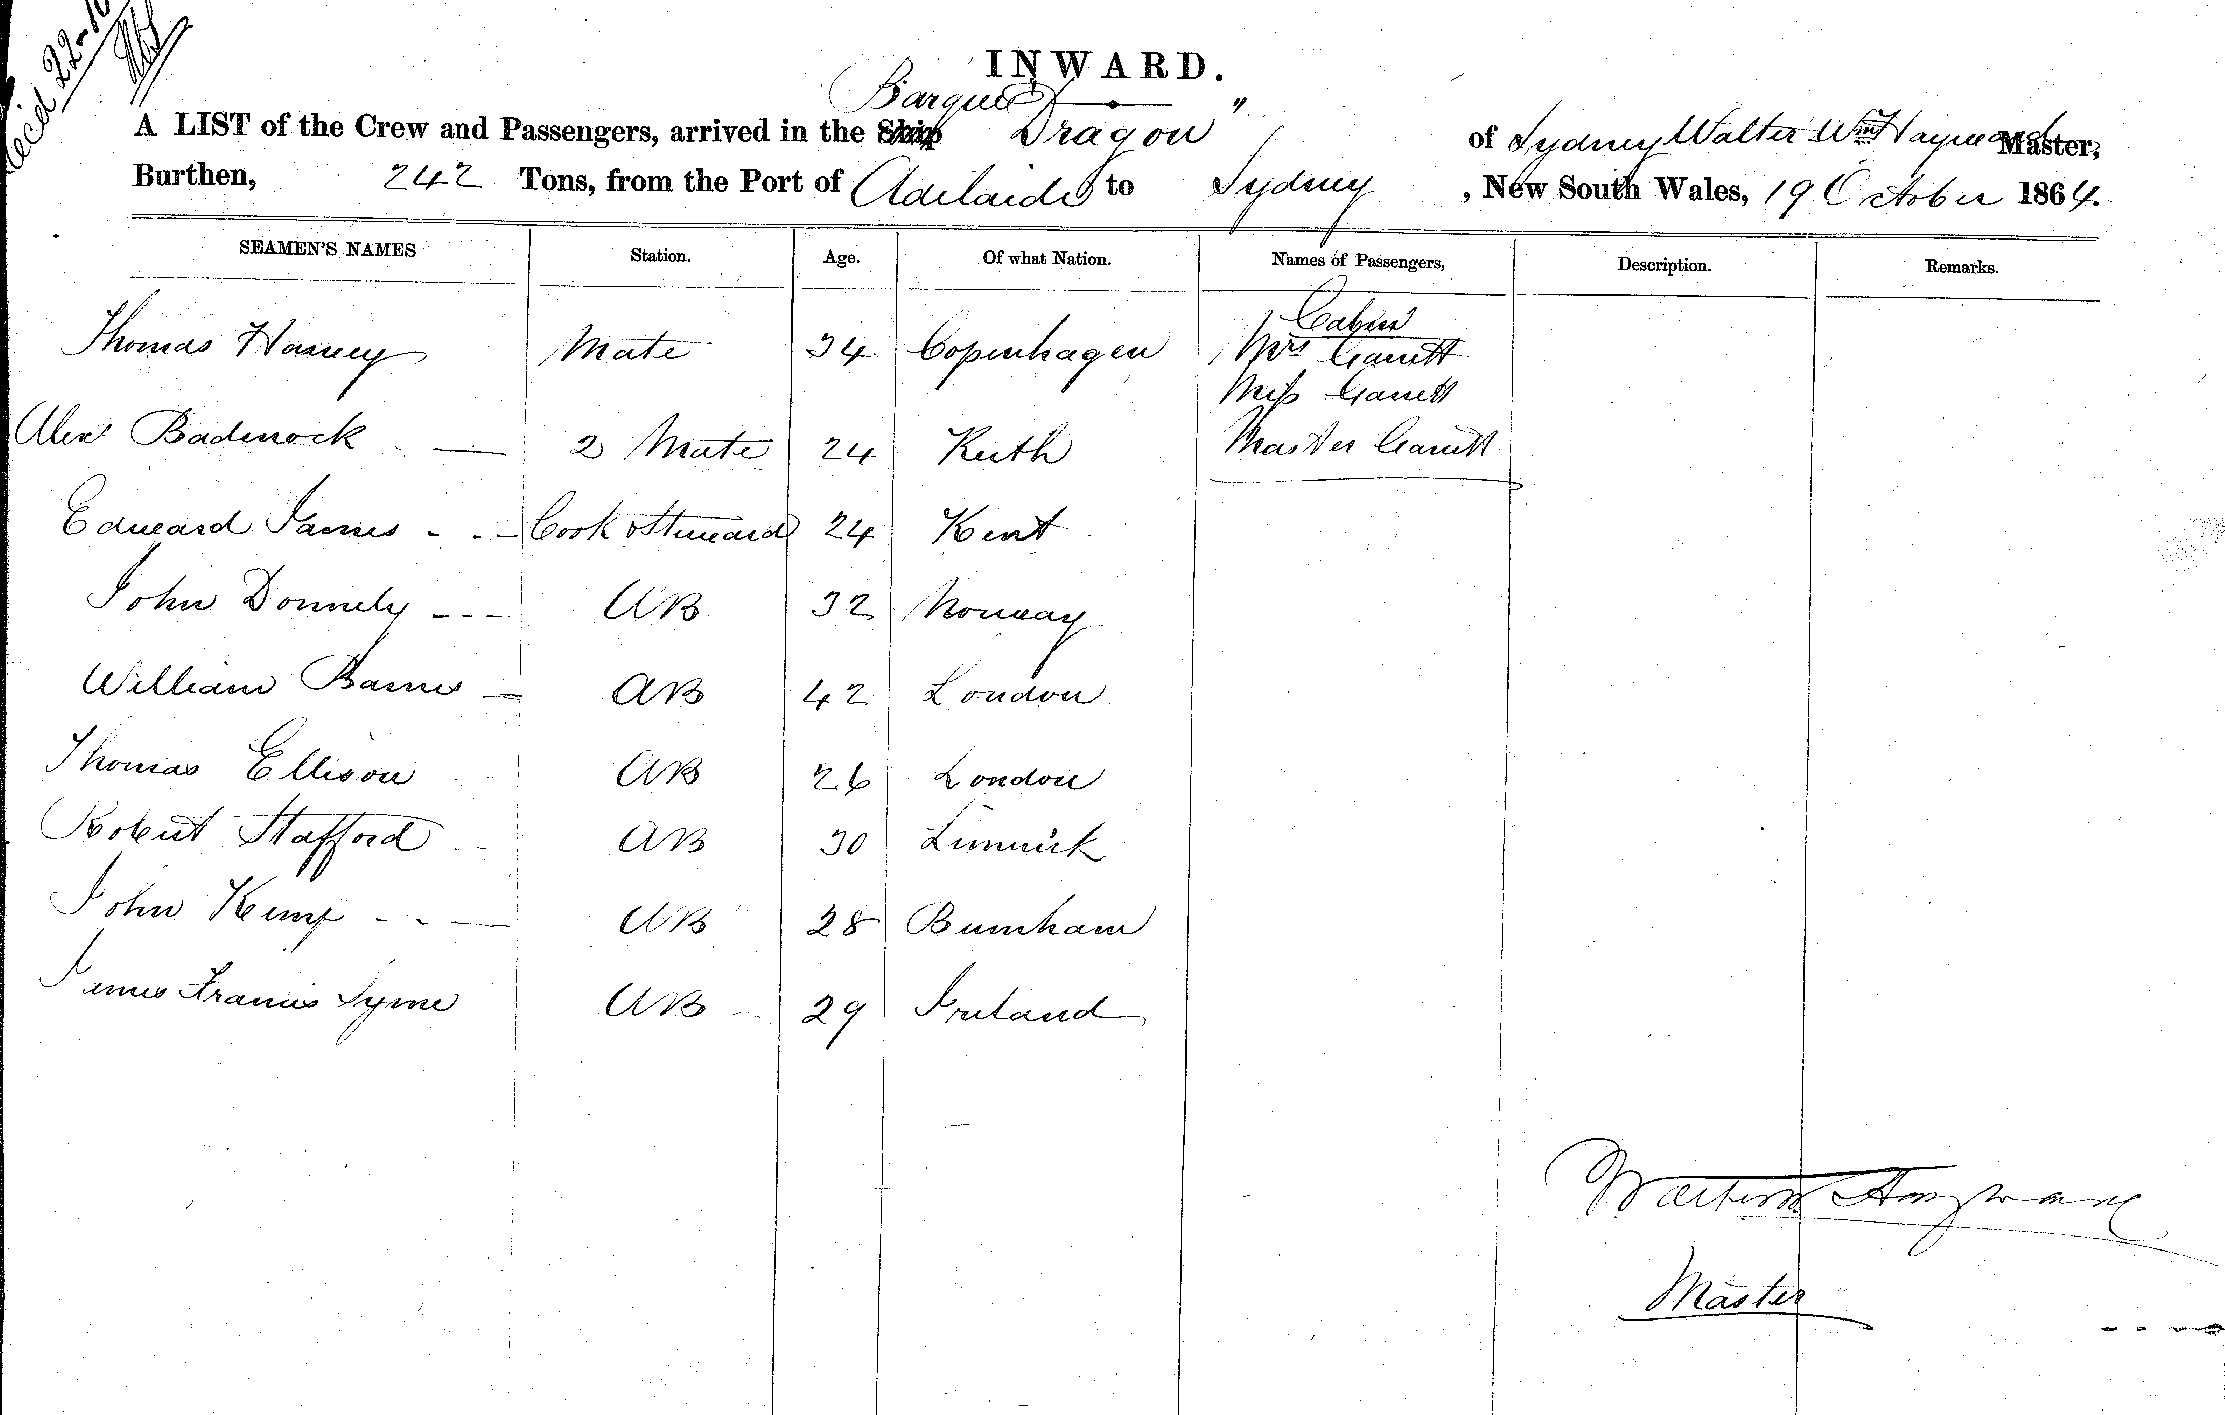 Rec'd 22-10
INWARD.
Barque
A LIST of the Crew and Passengers, arrived in the Ship Dragon " of Sydney Walter Wm Hayward Master,
Burthen, 242 Tons, from the Port of Adelaide to Sydney , New South Wales, 19 October 1864.
SEAMEN'S NAMES Station. Age. Of what Nation. Names of Passengers, Description. Remarks.
Cabin
Thomas Harvey Mate 34 Copenhagen Mrs Garrett
Miss Garrett
Alexr Badenock 2 Mate 24 Keith Master Garrett
Edward James Cook & Steward 24 Kent
John Donnely AB 32 Norway
William Barnes AB 42 London
Thomas Ellison AB 26 London
Robert Stafford AB 30 Limerick
John Kemp AB 28 Burnham
James Francis Syme AB 29 Ireland
Walter Wm Hayward
Master